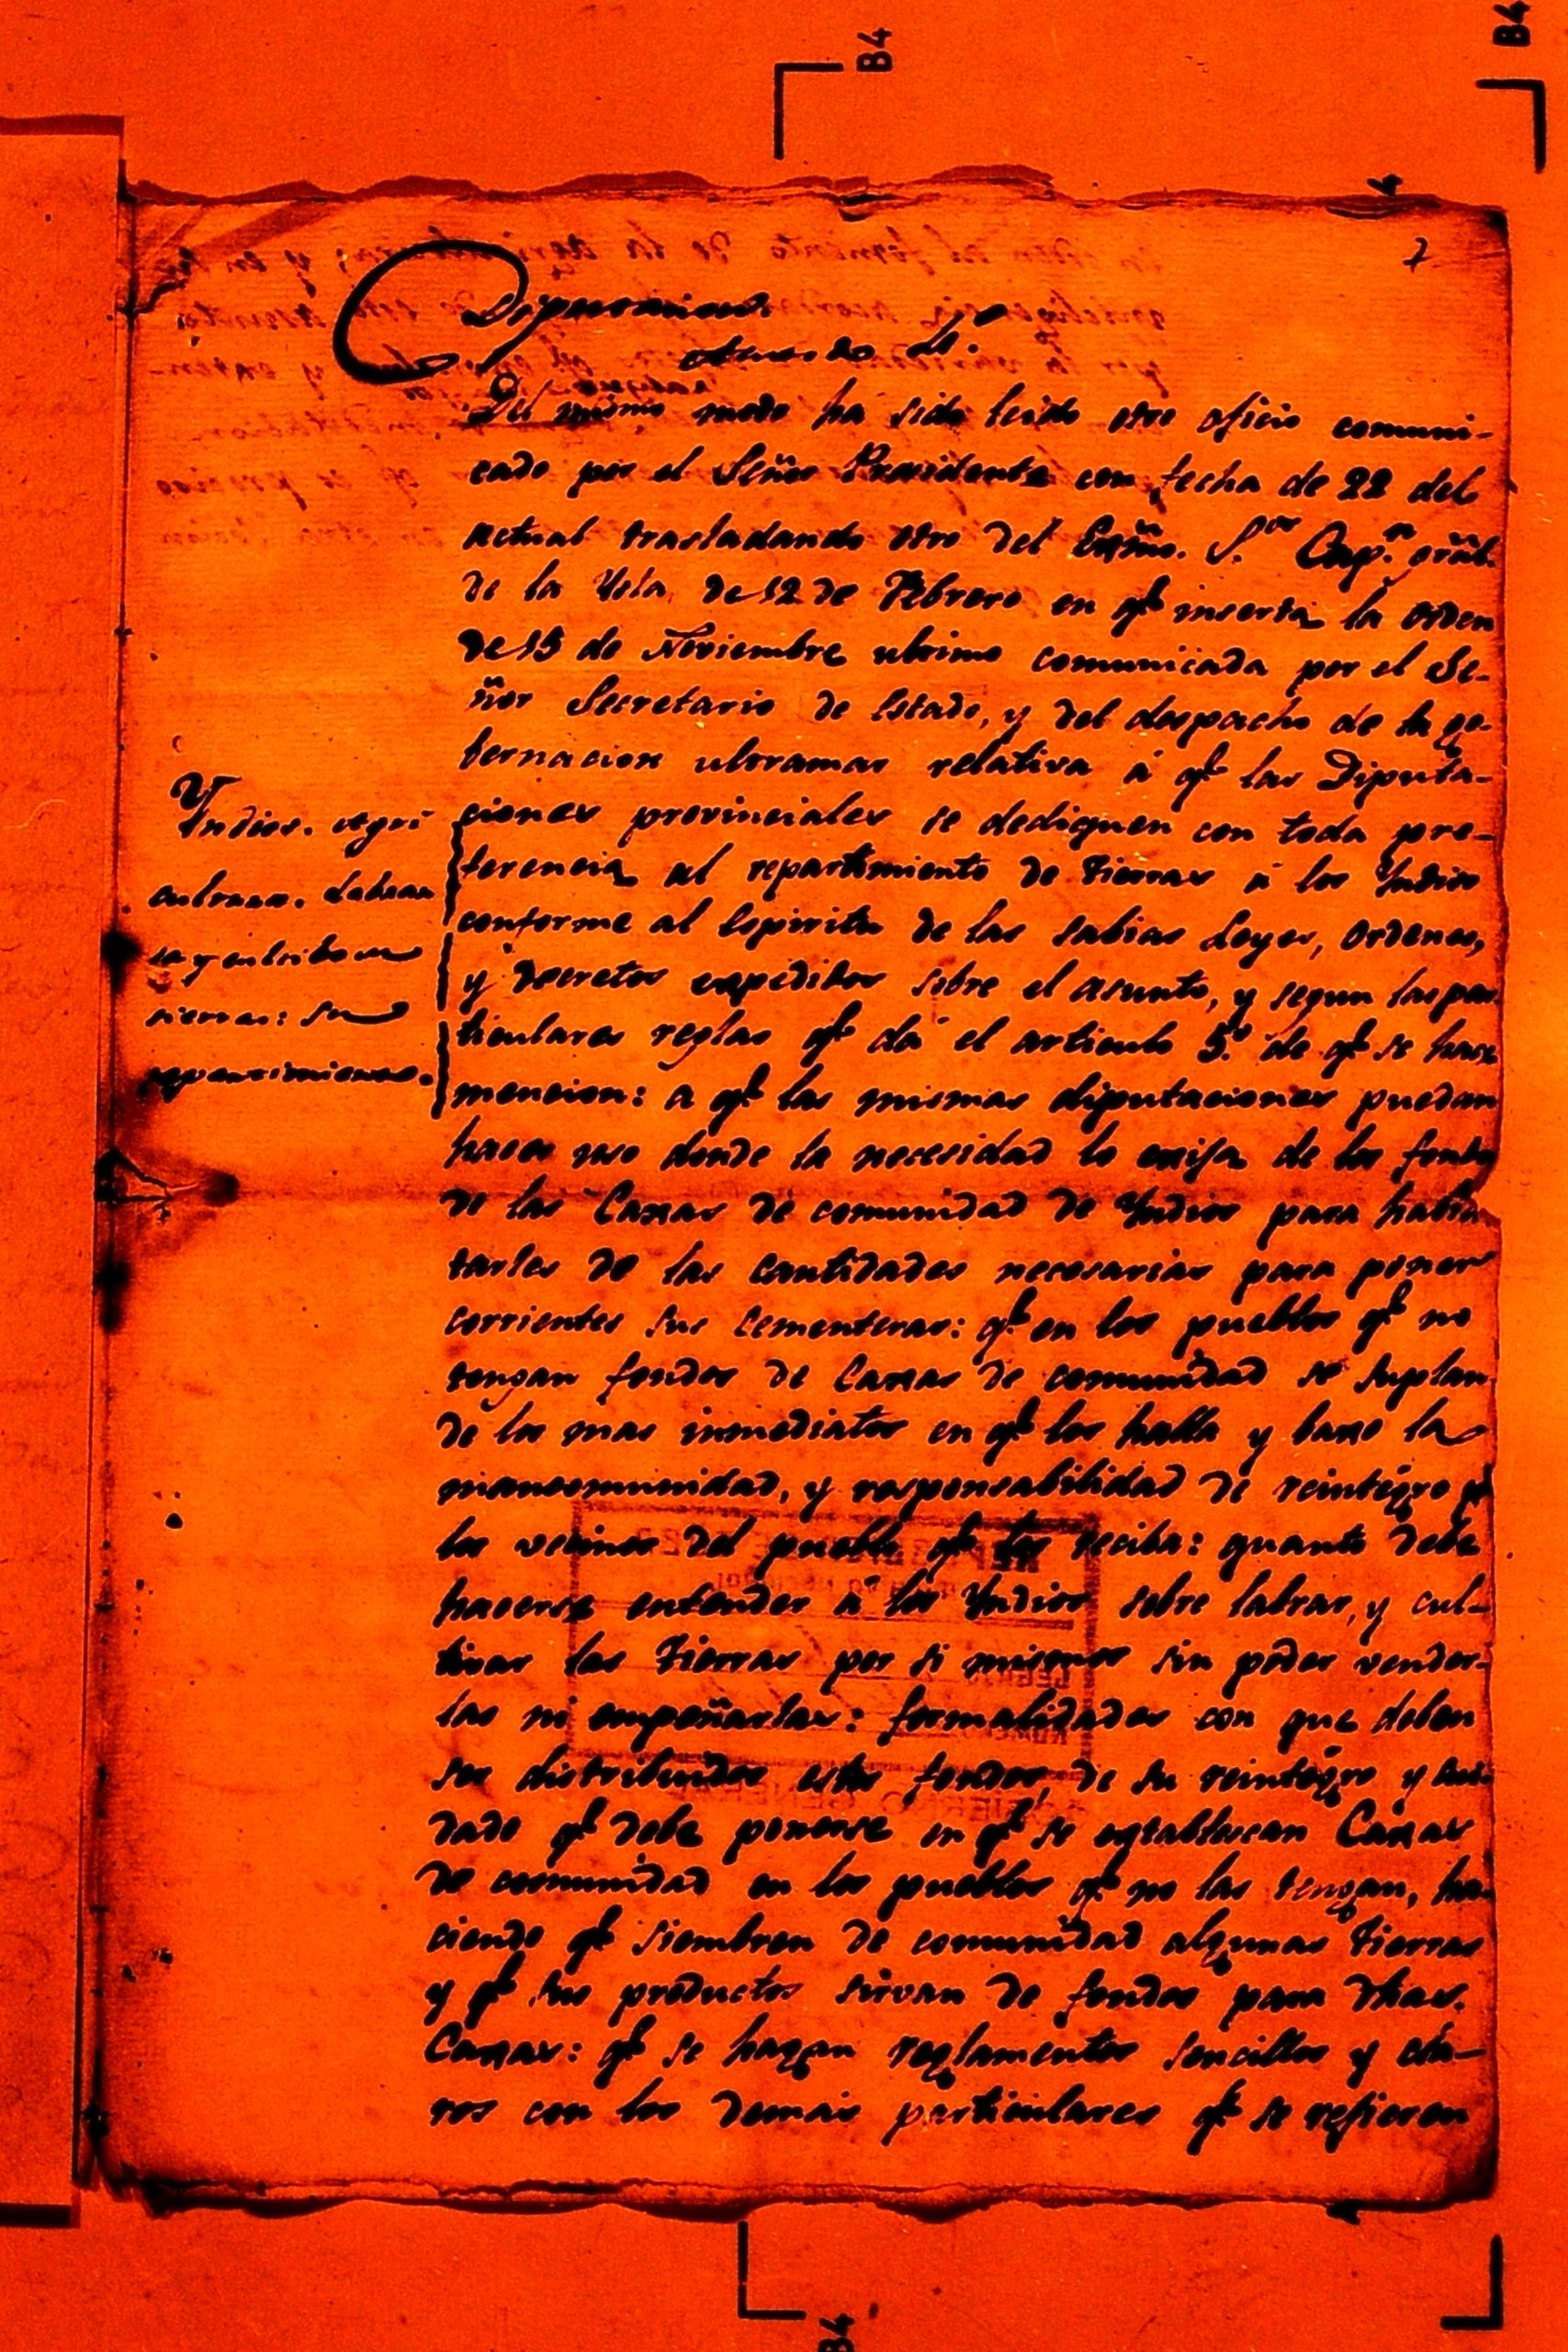 7
Diputacion
Acuerdo
Del mismo modo ha sido leido otro oficio comuni-
cado por el Señor Presidente con fecha de 22 del
actual trasladando otro del Exm̃o. S.or Cap.n gr̃al.
de la Ysla, de 12 de Febrero en q.e inserta la orden
de 15 de Noviembre ultimo comunicada por el Se-
ñor Secretario de Estado, y del despacho de la go-
bernacion ultramar relativa á q.e las Diputa-
ciones provinciales se dediquen con toda pre-
ferencia al repartimiento de tierras á los Yndios
conforme al Espiritu de las sabias Leyes, ordenes,
y decretos expedidos sobre el asunto, y segun las par
ticulares reglas q.e dá el articulo 5.º de q.e se hace
mencion: a q.e las mismas diputaciones puedan
hacer uso donde la necesidad lo exija de los fondos
de las Caxas de comunidad de Yndios para habili
tarles de las cantidades necesarias para poner
corrientes sus cementeras: q.e en los pueblos q.e no
tengan fondos de Caxas de comunidad se suplan
de los mas inmediatos en q.e los halla y baxo la
mancomunidad, y responsabilidad de reintegro
los vecinos del pueblo q.e los reciba: quanto debe
hacerse entender á los Yndios sobre labrar, y cul-
tivar las tierras por si mismos sin poder vender-
las ni empeñarlas: formalidades con que deben
ser distribuidos estos fondos, de su reintegro y cui-
dado q.e debe ponerse en q.e se establescan Caxas
de comunidad en los pueblos q.e no las tengan, ha-
ciendo q.e siembren de comunidad algunas tierras
y q.e sus productos sirvan de fondos para dhas.
Caxas: q.e se hagan reglamentos sencillos y cla-
ros con los demás particulares q.e se refieren
Yndios. agri
cultores. Labran
sa y cultibo en
tierras: su
repartimiento.
B4
B4
B4